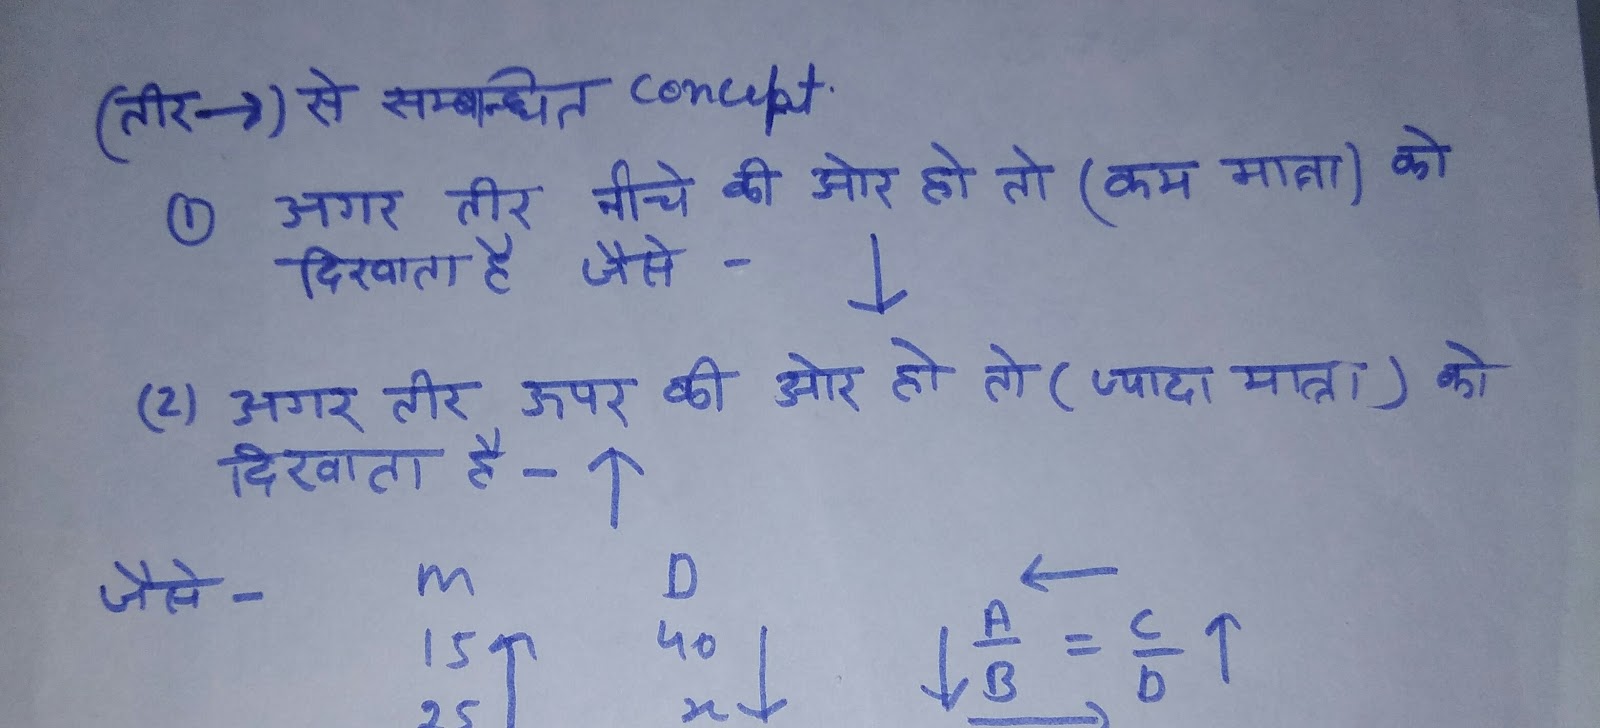 (तीर→) से सम्बन्धित concept.
① अगर तीर नीचे की ओर हो तो (कम मात्रा) को
दिखाता है जैसे - ↓
(2) अगर तीर ऊपर की ओर हो तो (ज्यादा मात्रा) को
दिखाता है - ↑
जैसे - m D ←
15 ↑ 40 ↓ ↓ A/B = C/D ↑
25 x →